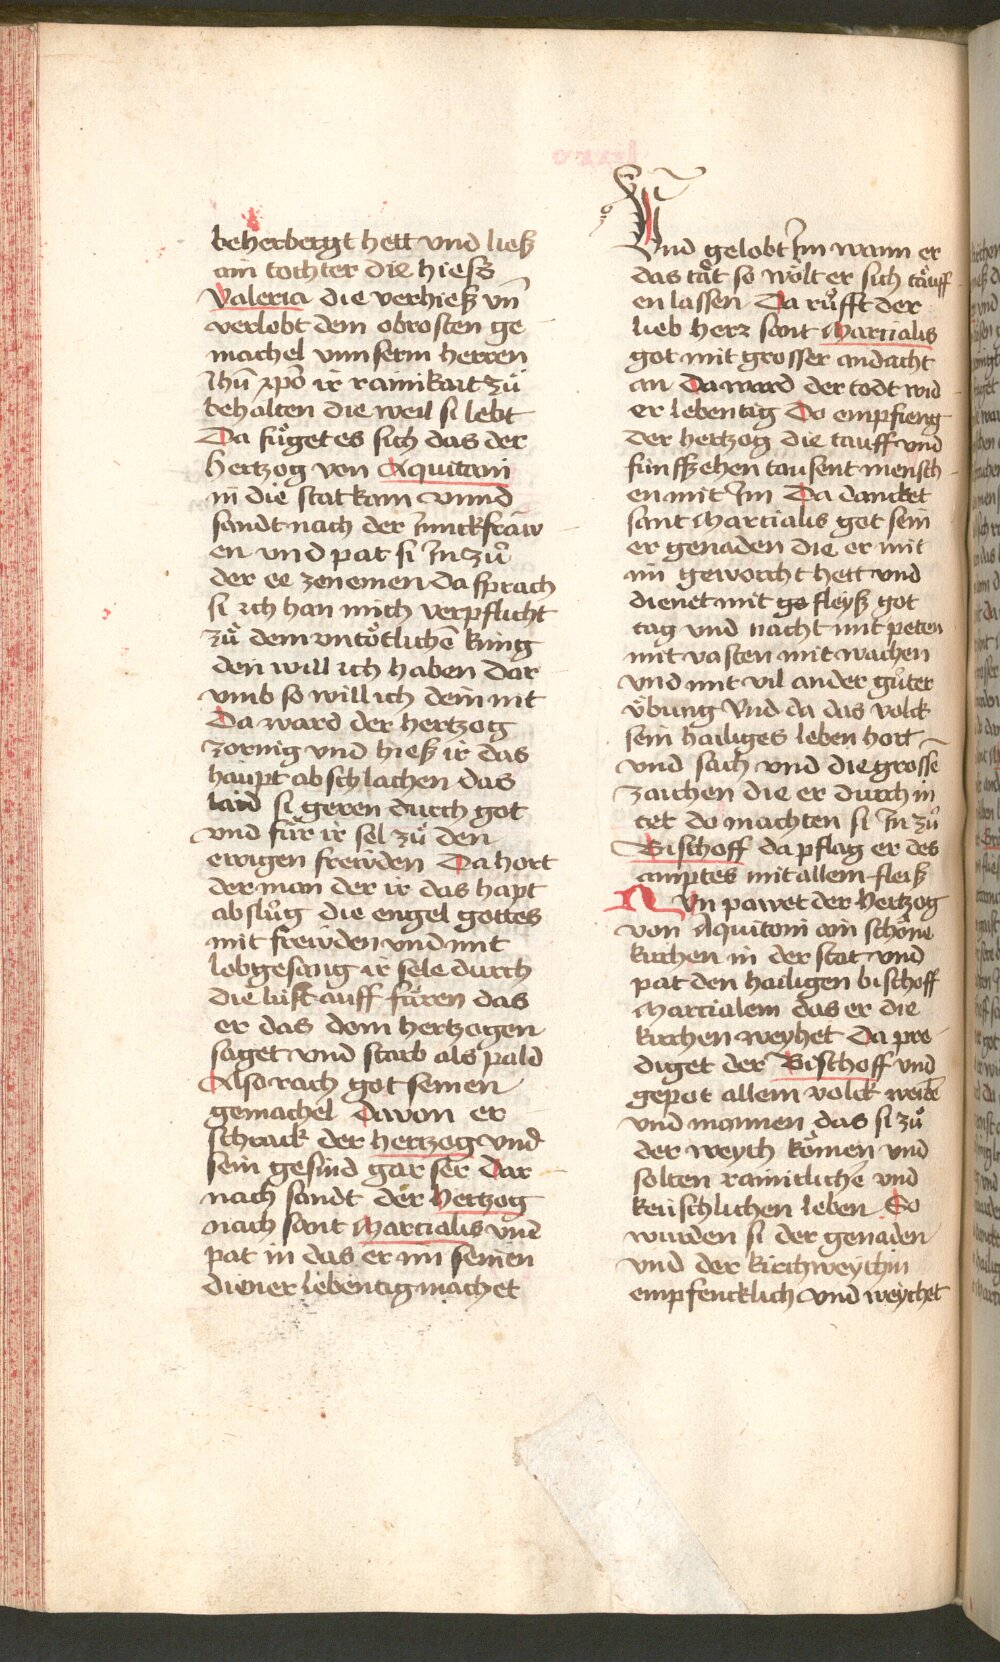 beherbergt hett vnd ließ
ain tochter die hiess
Valeria die verhieß vn̄
verlobt dem obrosten ge
machel vnnserm herren
Jhū xpō ir rainikait zů
behalten die weil si lebt
Da fůget es sich das der
hertzog von Aquitani
in die stat kam vnnd
sandt nach der Junckfraw
en vnd pat si Jn zů
der ee zenemen Da sprach
si ich han mich verpflicht
zů dem vntötlichē king
den will ich haben dar
vmb so will ich dein nit
Da ward der hertzog
zornig vnd hieß ir das
haupt abschlachen das
laid si geren durch got
vnd für ir sel zů den
ewigen frewden Da hort
der man der ir das hapt
abslůg die engel gottes
mit frewden vnd mit
lobgesang ir sele durch
die lufft auff füren das
er das dem hertzogen
saget vnd starb als pald
Also rach got seinen
gemachel Davon er
schrack der hertzog vnd
sein gesind gar ser Dar
nach sandt der hertzog
nach sant Marcialis vnd
pat in das er im seinen
diener lebentig machet
Vnd gelobt Jm wann er
das tät so wölt er sich täuff
en lassen Da růfft der
lieb herz sant Marcialis
got mit grosser andacht
an Da ward der todt wid
er lebentig Do empfieng
der hertzog die tauff vnd
fünffzehen tausent mensch
en mit Jm Da dancket
sant Marcialis got sein
er genaden die er mit
im geworcht hett vnd
dienet mit go fleyß got
tag vnd nacht mit peten
mit vasten mit wachen
vnd mit vil ander gůter
übung Vnd da das volck
sein hailiges leben hort
vnd sach vnd die grosse
zaichen die er durch in
tet do machten si Jn zů
Bischoff da pflag er des
amptes mit allem fleiß
Nun pawet der hertzog
von Aquitani ain schöne
kirchen in der stat vnd
pat den hailigen bischoff
Marcialem das er die
kirchen weyhet Da pre
diget der Bischoff vnd
gepot allem volck weibē
vnd mannen das si zů
der weych kömen vnd
solten rainicliche vnd
keüschlichen leben So
wurden si der genaden
vnd der kirchweychin
empfencklich vnd weychet